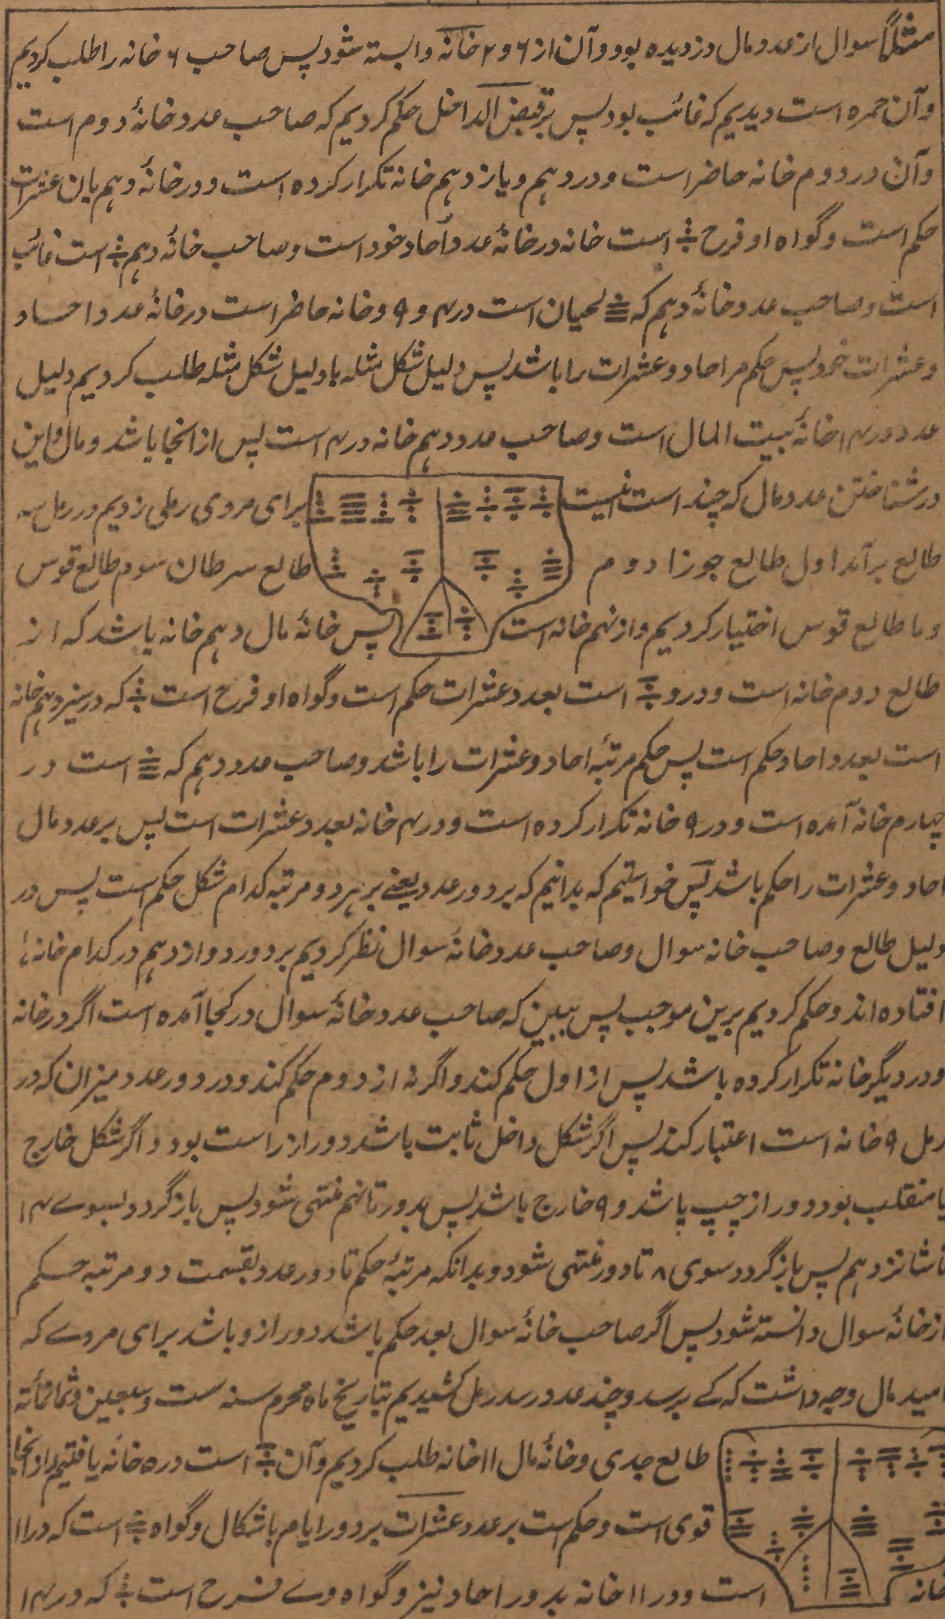 مثلاً سوال از عدد مال دزدیده بود و آن از ۶ و ۲ خانه وابسته شود پس صاحب ۶ خانه را طلب کردیم
و آن حمره است دیدیم که غائب بود پس بر قبض الداخل حکم کردیم که صاحب عدد خانهٔ دوم است
و آن در دوم خانه حاضر است و در دهم و یازدهم خانه تکرار کرده است و در خانهٔ دهم بان عشرات
حکم است و گواه او فرح است خانه در خانهٔ عدد آحاد خود است و صاحب خانهٔ دهم است غائب
است و صاحب عدد خانهٔ دهم که لحیان است در ۴ و ۹ و خانه حاضر است در خانهٔ عدد احاد
و عشرات خود پس حکم مر احاد و عشرات را باشد پس دلیل شکل مثله با دلیل شکل مثله طلب کردیم دلیل
عدد در ۴ خانهٔ بیت المال است و صاحب عدد دهم خانه در ۴ است پس از انجا باشد و مال و این
در شناختن عدد مال که چند است اینست برای مردی رملی زدیم در رمل سه
طالع برآمد اول طالع جوزا دوم طالع سرطان سوم طالع قوس
و ما طالع قوس اختیار کردیم و از نهم خانه است پس خانهٔ مال دهم خانه باشد که از
طالع دوم خانه است و در و است بعدد عشرات حکم است و گواه او فرح است که در سیزدهم خانه
است بعدد احاد حکم است پس حکم مرتبهٔ احاد و عشرات را باشد و صاحب عدد دهم که است در
چهارم خانه آمده است و در ۹ خانه تکرار کرده است و در ۴ خانه بعدد عشرات است پس بر عدد مال
احاد و عشرات را حکم باشد پس خواستیم که بدانیم که بر دور عدد یعنے بر هر دو مرتبه کدام شکل حکم است پس در
دلیل طالع و صاحب خانه سوال و صاحب عدد خانهٔ سوال نظر کردیم بر دور دوازدهم در کدام خانها
افتاده اند و حکم کردیم برین موجب پس ببین که صاحب عدد خانهٔ سوال در کجا آمده است اگر در خانه
و در دیگر خانه تکرار کرده باشد پس از اول حکم کند و اگر نه از دوم حکم کند و در دور عدد میزان که در
رمل ۹ خانه است اعتبار کند پس اگر شکل داخل ثابت باشد دور از راست بود و اگر شکل خارج
یا منقلب بود دور از چپ باشد و ۹ خارج باشد پس بدور تا نهم منتهی شود پس باز گردد بسوے ۱۴
تا شانزدهم پس باز گردد سوی ۸ تا دور منتهی شود و بدانکه مرتبهٔ حکم تا دور عدد بقسمت دو مرتبه حکم
از خانهٔ سوال دانسته شود پس اگر صاحب خانهٔ سوال بعد حکم باشد دور از و باشد برای مردے که
امید مال وجه داشت که کے برسد و چند عدد رسد رمل کشیدیم بتاریخ ماه محرم سنه ست و سبعین و ثمانمائة
طالع جدی و خانهٔ مال ۱۱ خانه طلب کردیم و آن است در ۵ خانه یافتیم از انجا
قوی است و حکم است بر عدد عشرات بر دور ایام باشکال و گواه است که در ۱۱
خانه است و در ۱۱ خانه بدور احاد نیز و گواه وے فرح است که در ۱۴